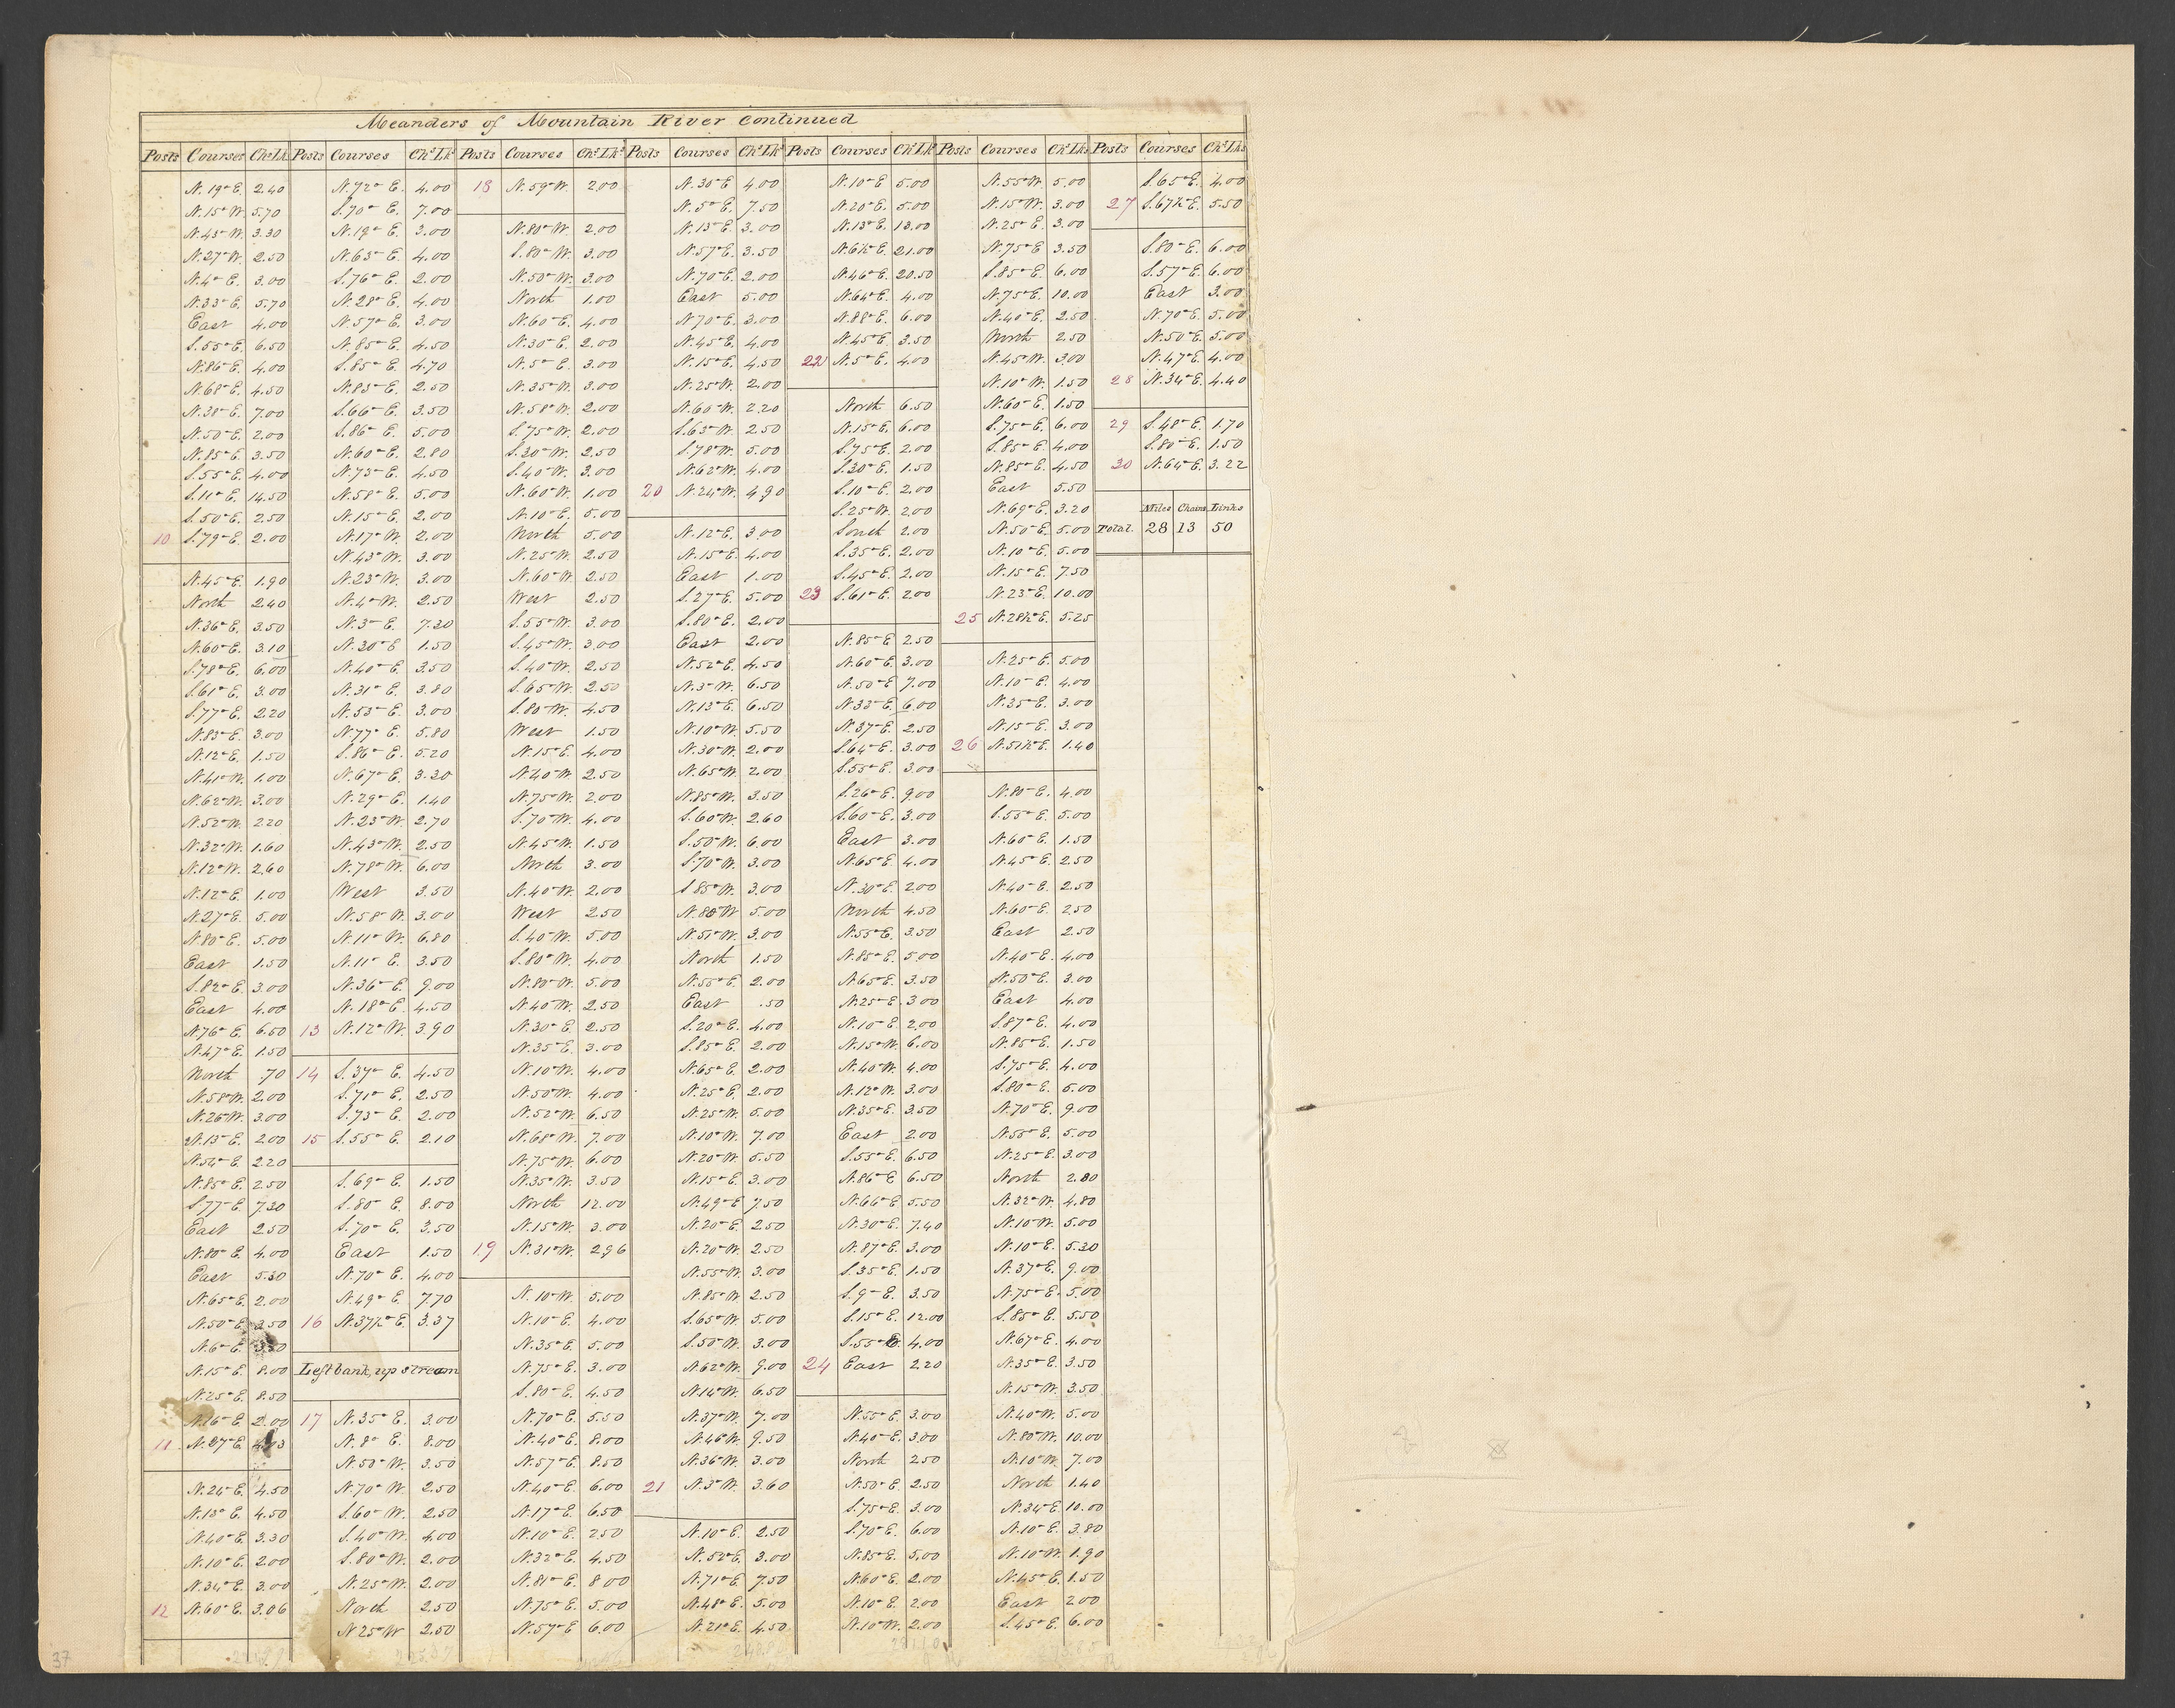 Meanders of Mountain River Continued
Posts Courses Chs Lks Posts Courses Chs Lks Posts Courses Chs Lks Posts Courses Chs Lks Posts Courses Chs Lks Posts Courses Chs Lks Posts Courses Chs Lks
N. 19° E. 2.40
N. 15° W. 5.70
N. 43° W. 3.30
N. 27° W. 2.50
N. 4° E. 3.00
N. 33° E. 5.70
East 4.00
S. 55° E. 6.50
N. 86° E. 4.00
N. 68° E. 4.50
N. 38° E. 7.00
N. 50° E. 2.00
N. 85° E. 3.50
S. 55° E. 4.00
S. 11° E. 14.50
S. 50° E. 2.50
10 S. 79° E. 2.00
N. 45° E. 1.90
North 2.40
N. 36° E. 3.50
N. 60° E. 3.10
S. 78° E. 6.00
S. 61° E. 3.00
S. 77° E. 2.20
N. 83° E. 3.00
N. 12° E. 1.50
N. 41° W. 1.00
N. 62° W. 3.00
N. 52° W. 2.20
N. 32° W. 1.60
N. 12° W. 2.60
N. 12° E. 1.00
N. 27° E. 5.00
N. 80° E. 5.00
East 1.50
S. 82° E. 3.00
East 4.00
N. 76° E. 6.50
N. 47° E. 1.50
North .70
N. 58° W. 2.00
N. 26° W. 3.00
N. 13° E. 2.00
N. 54° E. 2.20
N. 85° E. 2.50
S. 77° E. 7.30
East 2.50
N. 80° E. 4.00
East 5.30
N. 65° E. 2.00
N. 50° E. 3.50
N. 6° E.
N. 15° E. 8.00
N. 25° E. 8.50
N. 16° E. 2.00
11 N. 27° E.
N. 24° E. 4.50
N. 13° E. 4.50
N. 40° E. 3.30
N. 10° E. 2.00
N. 34° E. 3.00
12 N. 60° E. 3.06
N. 72° E. 4.00
S. 70° E. 7.00
N. 19° E. 3.00
N. 63° E. 4.00
S. 76° E. 2.00
N. 28° E. 4.00
N. 57° E. 3.00
N. 85° E. 4.50
S. 85° E. 4.70
N. 83° E. 2.50
S. 66° E. 3.50
S. 86° E. 5.00
N. 60° E. 2.80
N. 73° E. 4.50
N. 58° E. 5.00
N. 15° E. 2.00
N. 17° W. 2.00
N. 43° W. 3.00
N. 23° W. 3.00
N. 4° W. 2.50
N. 3° E. 7.30
N. 20° E 1.50
N. 40° E. 3.50
N. 31° E. 3.80
N. 53° E. 3.00
N. 77° E. 5.80
S. 86° E. 5.20
N. 67° E. 3.30
N. 29° E. 1.40
N. 23° W. 2.70
N. 43° W. 2.50
N. 78° W. 6.00
West 3.50
N. 58° W. 3.00
N. 11° W. 6.80
N. 11° E. 3.50
N. 36° E. 9.00
N. 18° E. 4.50
13 N. 12° W. 3.90
14 S. 37° E. 4.50
S. 71° E. 2.50
S. 73° E. 2.00
15 S. 55° E. 2.10
S. 69° E. 1.50
S. 80° E. 8.00
S. 70° E. 3.50
East 1.50
N. 70° E. 4.00
N. 49° E. 7.70
16 N. 37½° E. 3.37
Left bank, up stream
17 N. 35° E. 3.00
N. 8° E. 8.00
N. 50° W. 3.50
N. 70° W. 2.50
S. 60° W. 2.50
S. 40° W. 4.00
S. 80° W. 2.00
N. 25° W. 2.00
North 2.50
N 25° W 2.50
18 N. 59° W. 2.00
N. 80° W. 2.00
S. 80° W. 3.00
N. 50° W. 3.00
North 1.00
N. 60° E. 4.00
N. 30° E. 2.00
N. 5° E. 3.00
N. 35° W. 3.00
N. 58° W. 2.00
S. 75° W. 2.00
S. 30° W. 2.50
S. 40° W. 3.00
N. 60° W. 1.00
N. 10° E. 5.00
North 5.00
N. 25° W. 2.50
N. 60° W. 2.50
West 2.50
S. 55° W. 3.00
S. 45° W. 3.00
S. 40° W. 2.50
S. 65° W. 2.50
S. 80° W. 4.50
West 1.50
N. 15° E. 4.00
N. 40° W 2.50
N. 75° W. 2.00
S. 70° W. 4.00
N. 45° W. 1.50
North 3.00
N. 40° W. 2.00
West 2.50
S. 40° W. 5.00
S. 80° W. 4.00
N. 80° W. 5.00
N. 40° W. 2.50
N. 30° E. 2.50
N. 35° E. 3.00
N. 10° W. 4.00
N. 50° W. 4.00
N. 52° W. 6.50
N. 68° W. 7.00
N. 75° W. 6.00
N. 35° W. 3.50
North 12.00
N. 15° W. 3.00
19 N. 31° W. 2.96
N. 10° W. 5.00
N. 10° E. 4.00
N. 35° E. 5.00
N. 75° E. 3.00
S. 80° E. 4.50
N. 70° E. 5.50
N. 40° E. 8.00
N. 57° E. 8.50
N. 40° E. 6.00
N. 17° E. 6.50
N. 10° E. 2.50
N. 32° E. 4.50
N. 81° E. 8.00
N. 75° E. 5.00
N. 57° E 6.00
N. 30° E 4.00
N. 5° E. 7.50
N. 15° E. 3.00
N. 57° E. 3.50
N. 70° E. 2.00
East 5.00
N 70° E. 3.00
N. 45° E. 4.00
N. 15° E. 4.50
N. 25° W. 2.00
N. 60° W. 2.20
S. 65° W. 2.50
S. 78° W. 5.00
N. 62° W. 4.00
20 N. 24° W. 4.90
N. 12° E. 3.00
N. 15° E. 4.00
East 1.00
S. 27° E. 5.00
S. 80° E. 2.00
East 2.00
N. 52° E. 4.50
N. 3° W. 6.50
N. 13° E. 6.50
N. 10° W. 5.50
N. 30° W. 2.00
N. 65° W. 2.00
N. 85° W. 3.50
S. 60° W. 2.60
S. 50° W. 6.00
S. 70° W. 3.00
S 85° W. 3.00
N. 80° W 5.00
N. 51° W. 3.00
North 1.50
N. 55° E. 2.00
East .50
S. 20° E. 4.00
S. 85° E. 2.00
N. 65° E. 2.00
N. 25° E. 2.00
N. 25° W. 5.00
N. 10° W. 7.00
N. 20° W. 5.50
N. 15° E. 3.00
N. 49° E 7.50
N. 20° E. 2.50
N. 20° W. 2.50
N. 55° W. 3.00
N. 85° W 2.50
S. 65° W. 5.00
S. 50° W. 3.00
N. 62° W. 9.00
N. 14° W. 6.50
N. 37° W. 7.00
N. 46° W. 9.50
N. 36° W. 3.00
21 N. 3° W. 3.60
N. 10° E. 2.50
N. 52° E. 3.00
N. 71° E. 7.50
N. 48° E. 5.00
N. 21° E. 4.50
N. 10° E 5.00
N. 20° E. 5.00
N. 13° E. 13.00
N. 6½° E. 21.00
N. 46° E. 20.50
N. 64° E. 4.00
N. 88° E. 6.00
N. 45° E 3.50
22 N. 5° E. 4.00
North 6.50
N. 15° E. 6.00
S. 75° E. 2.00
S. 30° E. 1.50
S. 10° E. 2.00
S. 25° W. 2.00
South 2.00
S. 35° E. 2.00
S. 45° E. 2.00
23 S. 61° E. 2.00
N. 85° E 2.50
N. 60° E. 3.00
N. 50° E 7.00
N. 33° E. 6.00
N. 37° E. 2.50
S. 64° E. 3.00
S. 55° E. 3.00
S. 26° E. 9.00
S. 60° E. 3.00
East 3.00
N. 65° E. 4.00
N. 30° E. 2.00
North 4.50
N. 55° E. 3.50
N. 85° E. 5.00
N. 65° E. 3.50
N. 25° E. 3.00
N. 10° E 2.00
N. 15° W. 6.00
N. 40° W. 4.00
N. 12° W. 3.00
N. 35° E. 3.50
East 2.00
S. 55° E. 6.50
N. 86° E 6.50
N. 66° E 5.50
N. 30° E. 7.40
N. 87° E. 3.00
S. 35° E. 1.50
S. 9° E. 3.50
S. 15° E. 12.00
S. 55° E. 4.00
24 East 2.20
N. 55° E. 3.00
N. 40° E. 3.00
North 2.50
N. 50° E. 2.50
S. 75° E. 3.00
S. 70° E. 6.00
N. 85° E. 5.00
N. 60° E. 2.00
N. 10° E 2.00
N. 10° W. 2.00
N. 55° W. 5.00
N. 15° W. 3.00
N. 25° E. 3.00
N. 75° E 3.50
S. 85° E. 6.00
N. 75° E. 10.00
N. 40° E. 2.50
North 2.50
N. 45° W. 3.00
N. 10° W. 1.50
N. 60° E. 1.50
S. 75° E. 6.00
S. 85° E. 4.00
N. 85° E. 4.50
East 5.50
N. 69° E. 3.20
N. 50° E. 5.00
N. 10° E. 5.00
N. 15° E. 7.50
N. 23° E. 10.00
25 N. 28½° E. 5.25
N. 25° E. 5.00
N. 10° E. 4.00
N. 35° E. 3.00
N. 15° E. 3.00
26 N. 51½° E. 1.40
N. 80° E. 4.00
S. 55° E. 5.00
N. 60° E. 1.50
N. 45° E. 2.50
N. 40° E. 2.50
N. 60° E. 2.50
East 2.50
N. 40° E. 4.00
N. 50° E. 3.00
East 4.00
S. 87° E. 4.00
N. 85° E. 1.50
S. 75° E. 4.00
S. 80° E. 5.00
N. 70° E. 9.00
N. 55° E. 5.00
N. 25° E. 3.00
North 2.80
N. 32° W. 4.80
N. 10° W. 5.00
N. 10° E. 5.20
N. 37° E. 9.00
N. 75° E. 5.00
S. 85° E. 5.50
N. 67° E. 4.00
N. 35° E. 3.50
N. 15° W. 3.50
N. 40° W. 5.00
N. 80° W. 10.00
N. 10° W. 7.00
North 1.40
N. 34° E. 10.00
N. 10° E. 3.80
N. 10° W. 1.90
N. 45° E. 1.50
East 2.00
S. 45° E. 6.00
S. 65° E. 4.00
27 S. 67½° E. 5.50
S. 80° E. 6.00
S. 57° E. 6.00
East 3.00
N. 70° E. 5.00
N. 50° E. 5.00
N. 47° E. 4.00
28 N. 34° E. 4.40
29 S. 48° E. 1.70
S. 80° E. 1.50
30 N. 64° E. 3.22
Miles Chains Links
Total 28 13 50
37